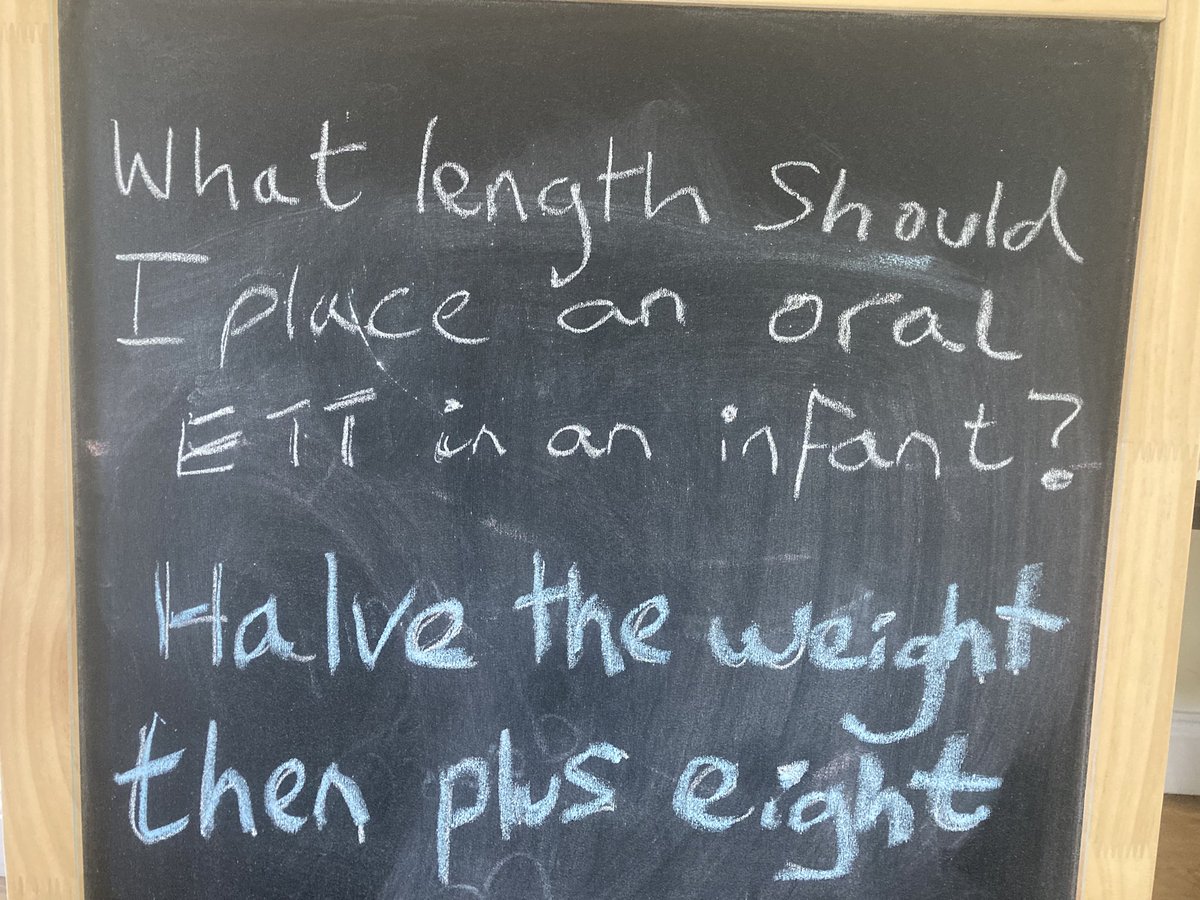 What length should
I place an oral
ETT in an infant?
Halve the weight
then plus eight